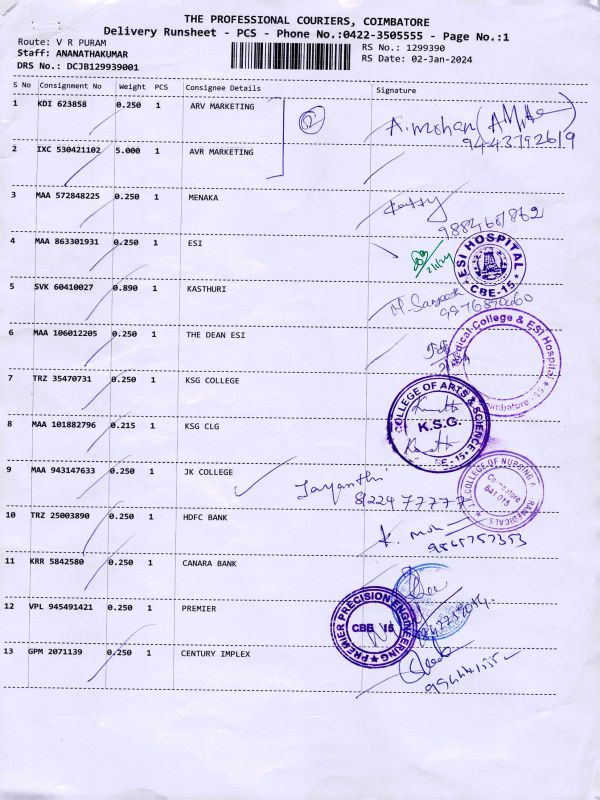 THE PROFESSIONAL COURIERS, COIMBATORE
Delivery Runsheet - PCS - Phone No.:0422-3505555 - Page No.:1
Route: V R PURAM
RS No.: 1299390
Staff: ANANATHAKUMAR
RS Date: 02-Jan-2024
DRS No.: DCJB129939001
S No Consignment No Weight PCS Consignee Details Signature
1 KDI 623858 0.250 1 ARV MARKETING
A.mohan
9443792619
2 IXC 530421102 5.000 1 AVR MARKETING
3 MAA 572848225 0.250 1 MENAKA
4 MAA 863301931 0.250 1 ESI
ESI HOSPITAL
CBE-15
5 SVK 60410027 0.890 1 KASTHURI
6 MAA 106012205 0.250 1 THE DEAN ESI
Medical College & ESI Hospital
Coimbatore - 15
7 TRZ 35470731 0.250 1 KSG COLLEGE
COLLEGE OF ARTS & SCIENCE
K.S.G.
CBE - 15
8 MAA 101882796 0.215 1 KSG CLG
9 MAA 943147633 0.250 1 JK COLLEGE
Jayanthi
82247 77777
COLLEGE OF NURSING &
Coimbatore
641 015
10 TRZ 25003890 0.250 1 HDFC BANK
11 KRR 5842580 0.250 1 CANARA BANK
12 VPL 945491421 0.250 1 PREMIER
PREMIER PRECISION ENGINEERING
CBE 15
13 GPM 2071139 0.250 1 CENTURY IMPLEX